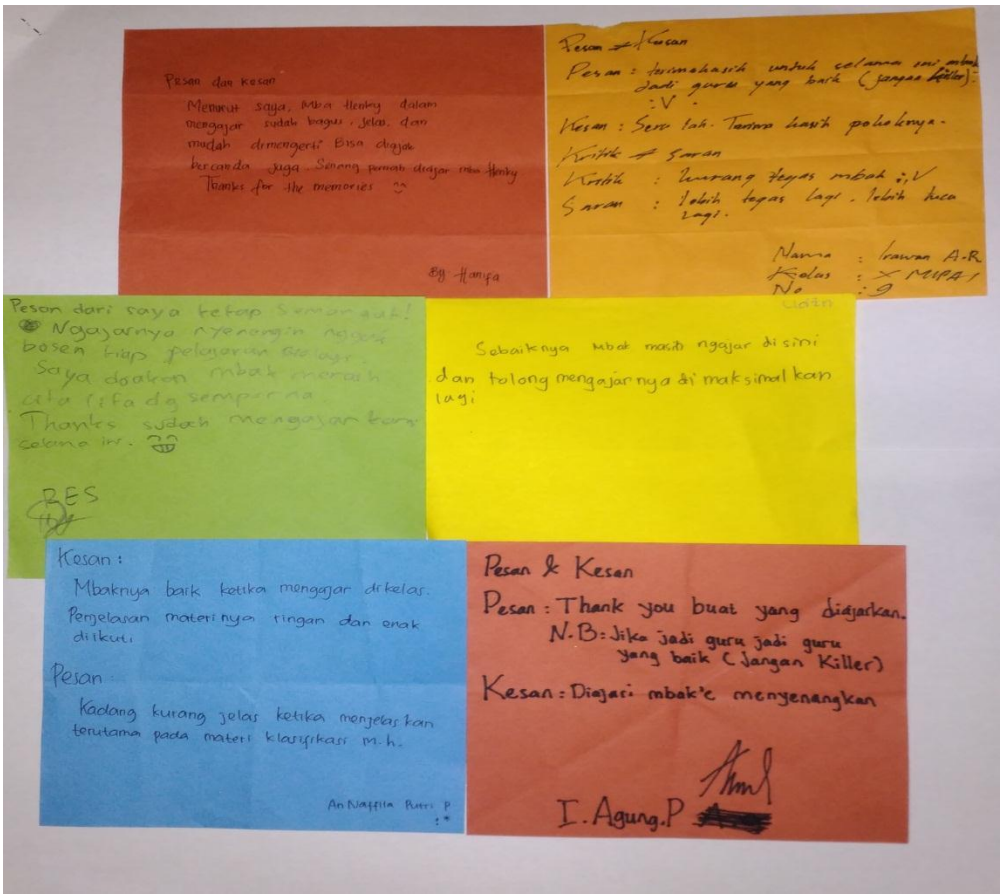 Pesan dan Kesan
Menurut saya, Mba Henky dalam
mengajar sudah bagus, jelas, dan
mudah dimengerti Bisa diajak
bercanda juga. Senang pernah diajar mba Henky
Thanks for the memories
By Hanifa
Pesan & Kesan
Pesan : terimakasih untuk selama ini mbak
Jadi guru yang baik (jangan killer).
:V
Kesan : Seru lah. Terima kasih pokoknya.
Kritik & Saran
Kritik : kurang tegas mbak :,V
Saran : lebih tegas lagi. lebih lucu
lagi.
Nama : Irawan A.R
Kelas : X MIPA 1
No : 9
Pesan dari saya tetap Semangat!
Ngajarnya nyenangin
bosen tiap pelajaran
Saya doakan mbak meraih
cita cita dg sempurna
Thanks sudah mengajar kami
selama ini.
RES
Sebaiknya Mbak masih ngajar disini
dan tolong mengajarnya di maksimalkan
lagi
Kesan :
Mbaknya baik ketika mengajar dikelas.
Penjelasan materinya ringan dan enak
diikuti
Pesan
Kadang kurang jelas ketika menjelaskan
terutama pada materi klasifikasi m.h.
An Naffila Putri P
Pesan & Kesan
Pesan : Thank you buat yang diajarkan.
N.B : Jika jadi guru jadi guru
yang baik (Jangan Killer)
Kesan : Diajari mbak'e menyenangkan
I. Agung.P